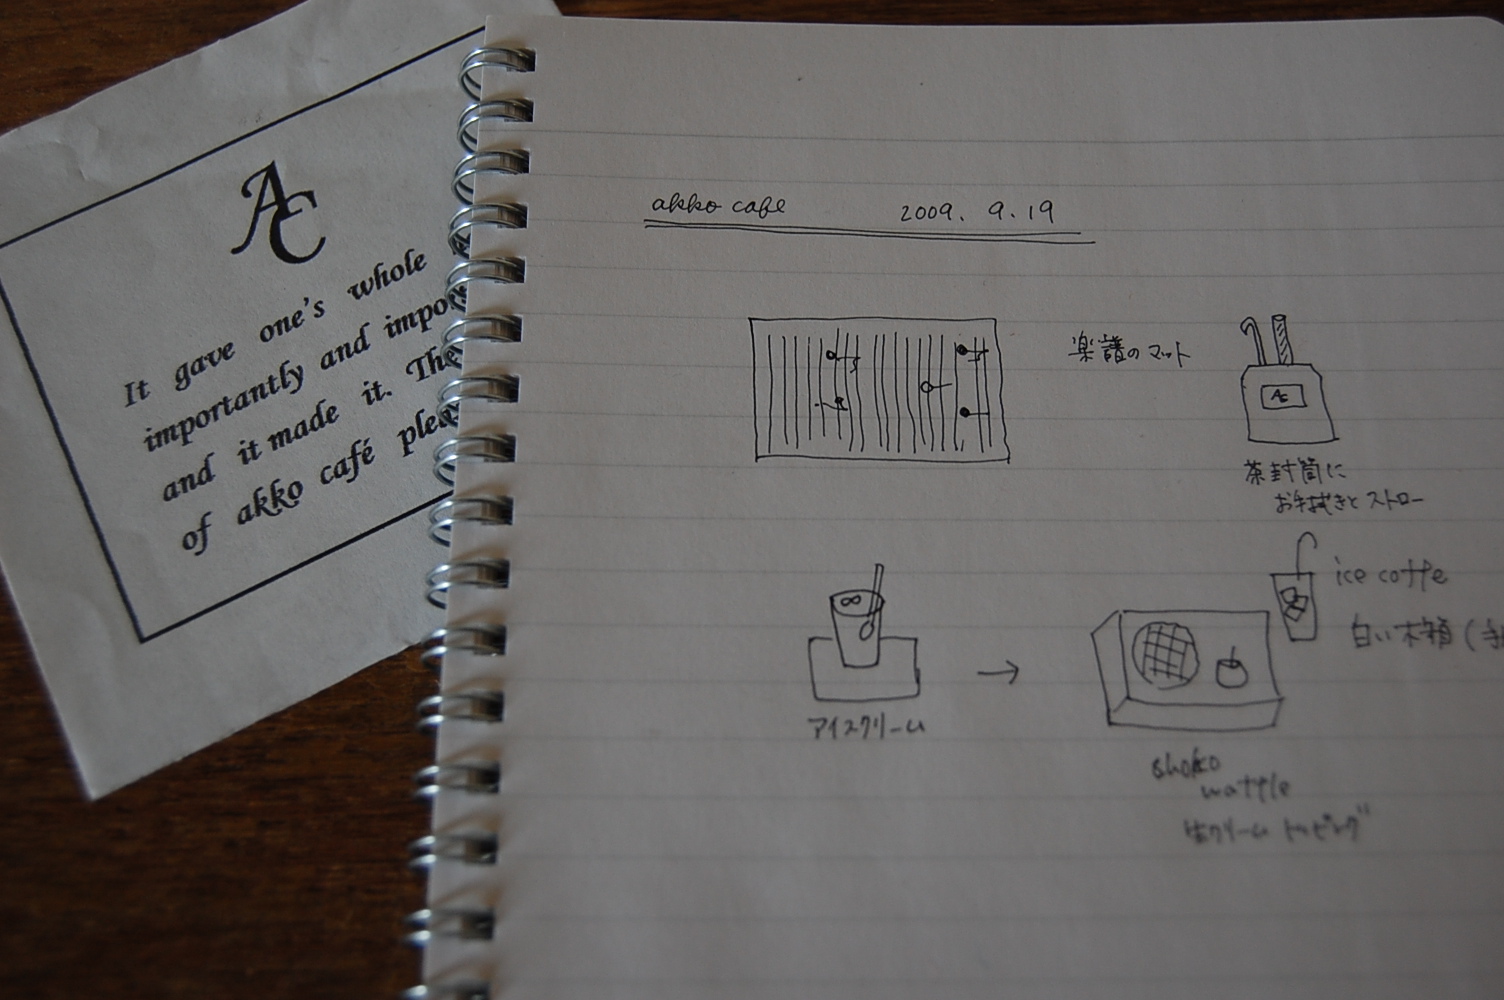 AC
It gave one's whole
importantly and impo
and it made it. The
of akko café plea
akko cafe 2009. 9. 19
楽譜のマット
AC
茶封筒に
お手拭きとストロー
ice coffe
白い木箱 (
アイスクリーム
shoko
waffle
生クリームトッピング